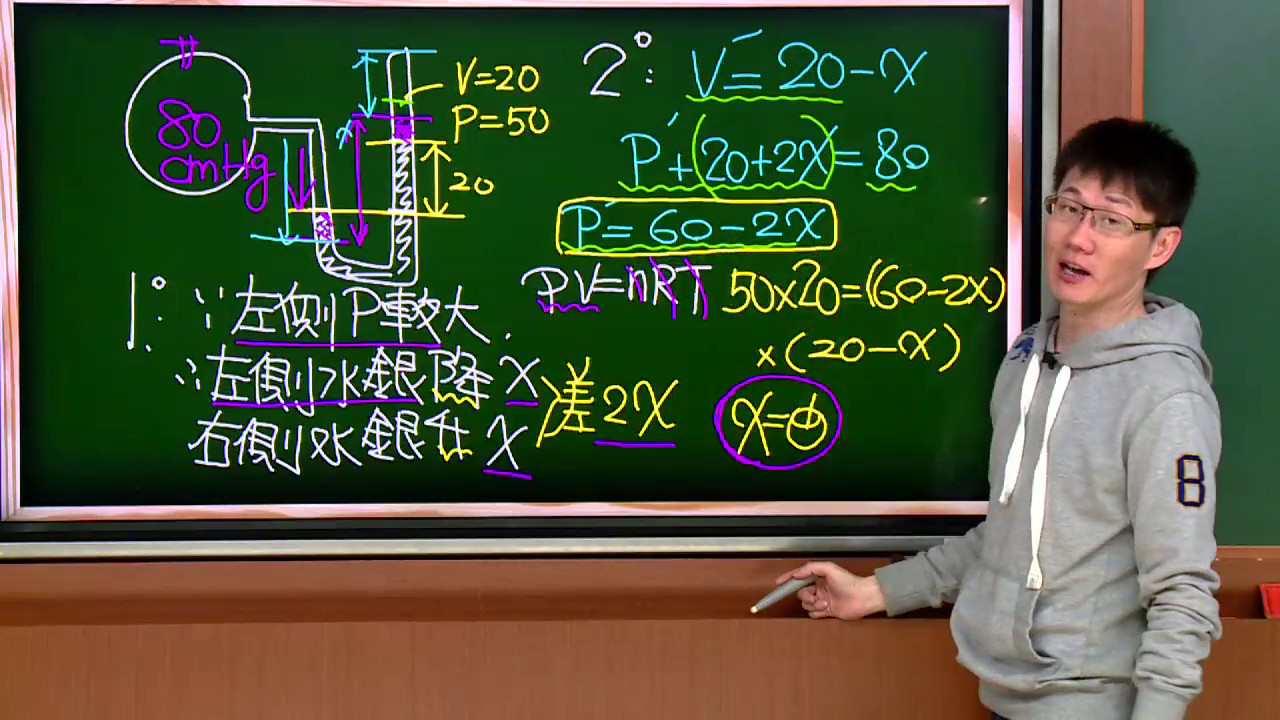 80
cmHg
V=20
P=50
20
x
2°: V'=20-x
P'+(20+2x)=80
P'=60-2x
PV=nRT 50x20=(60-2x)
x(20-x)
1°: ∵左側P較大.
∴左側水銀降x
右側水銀升x
差2x
8